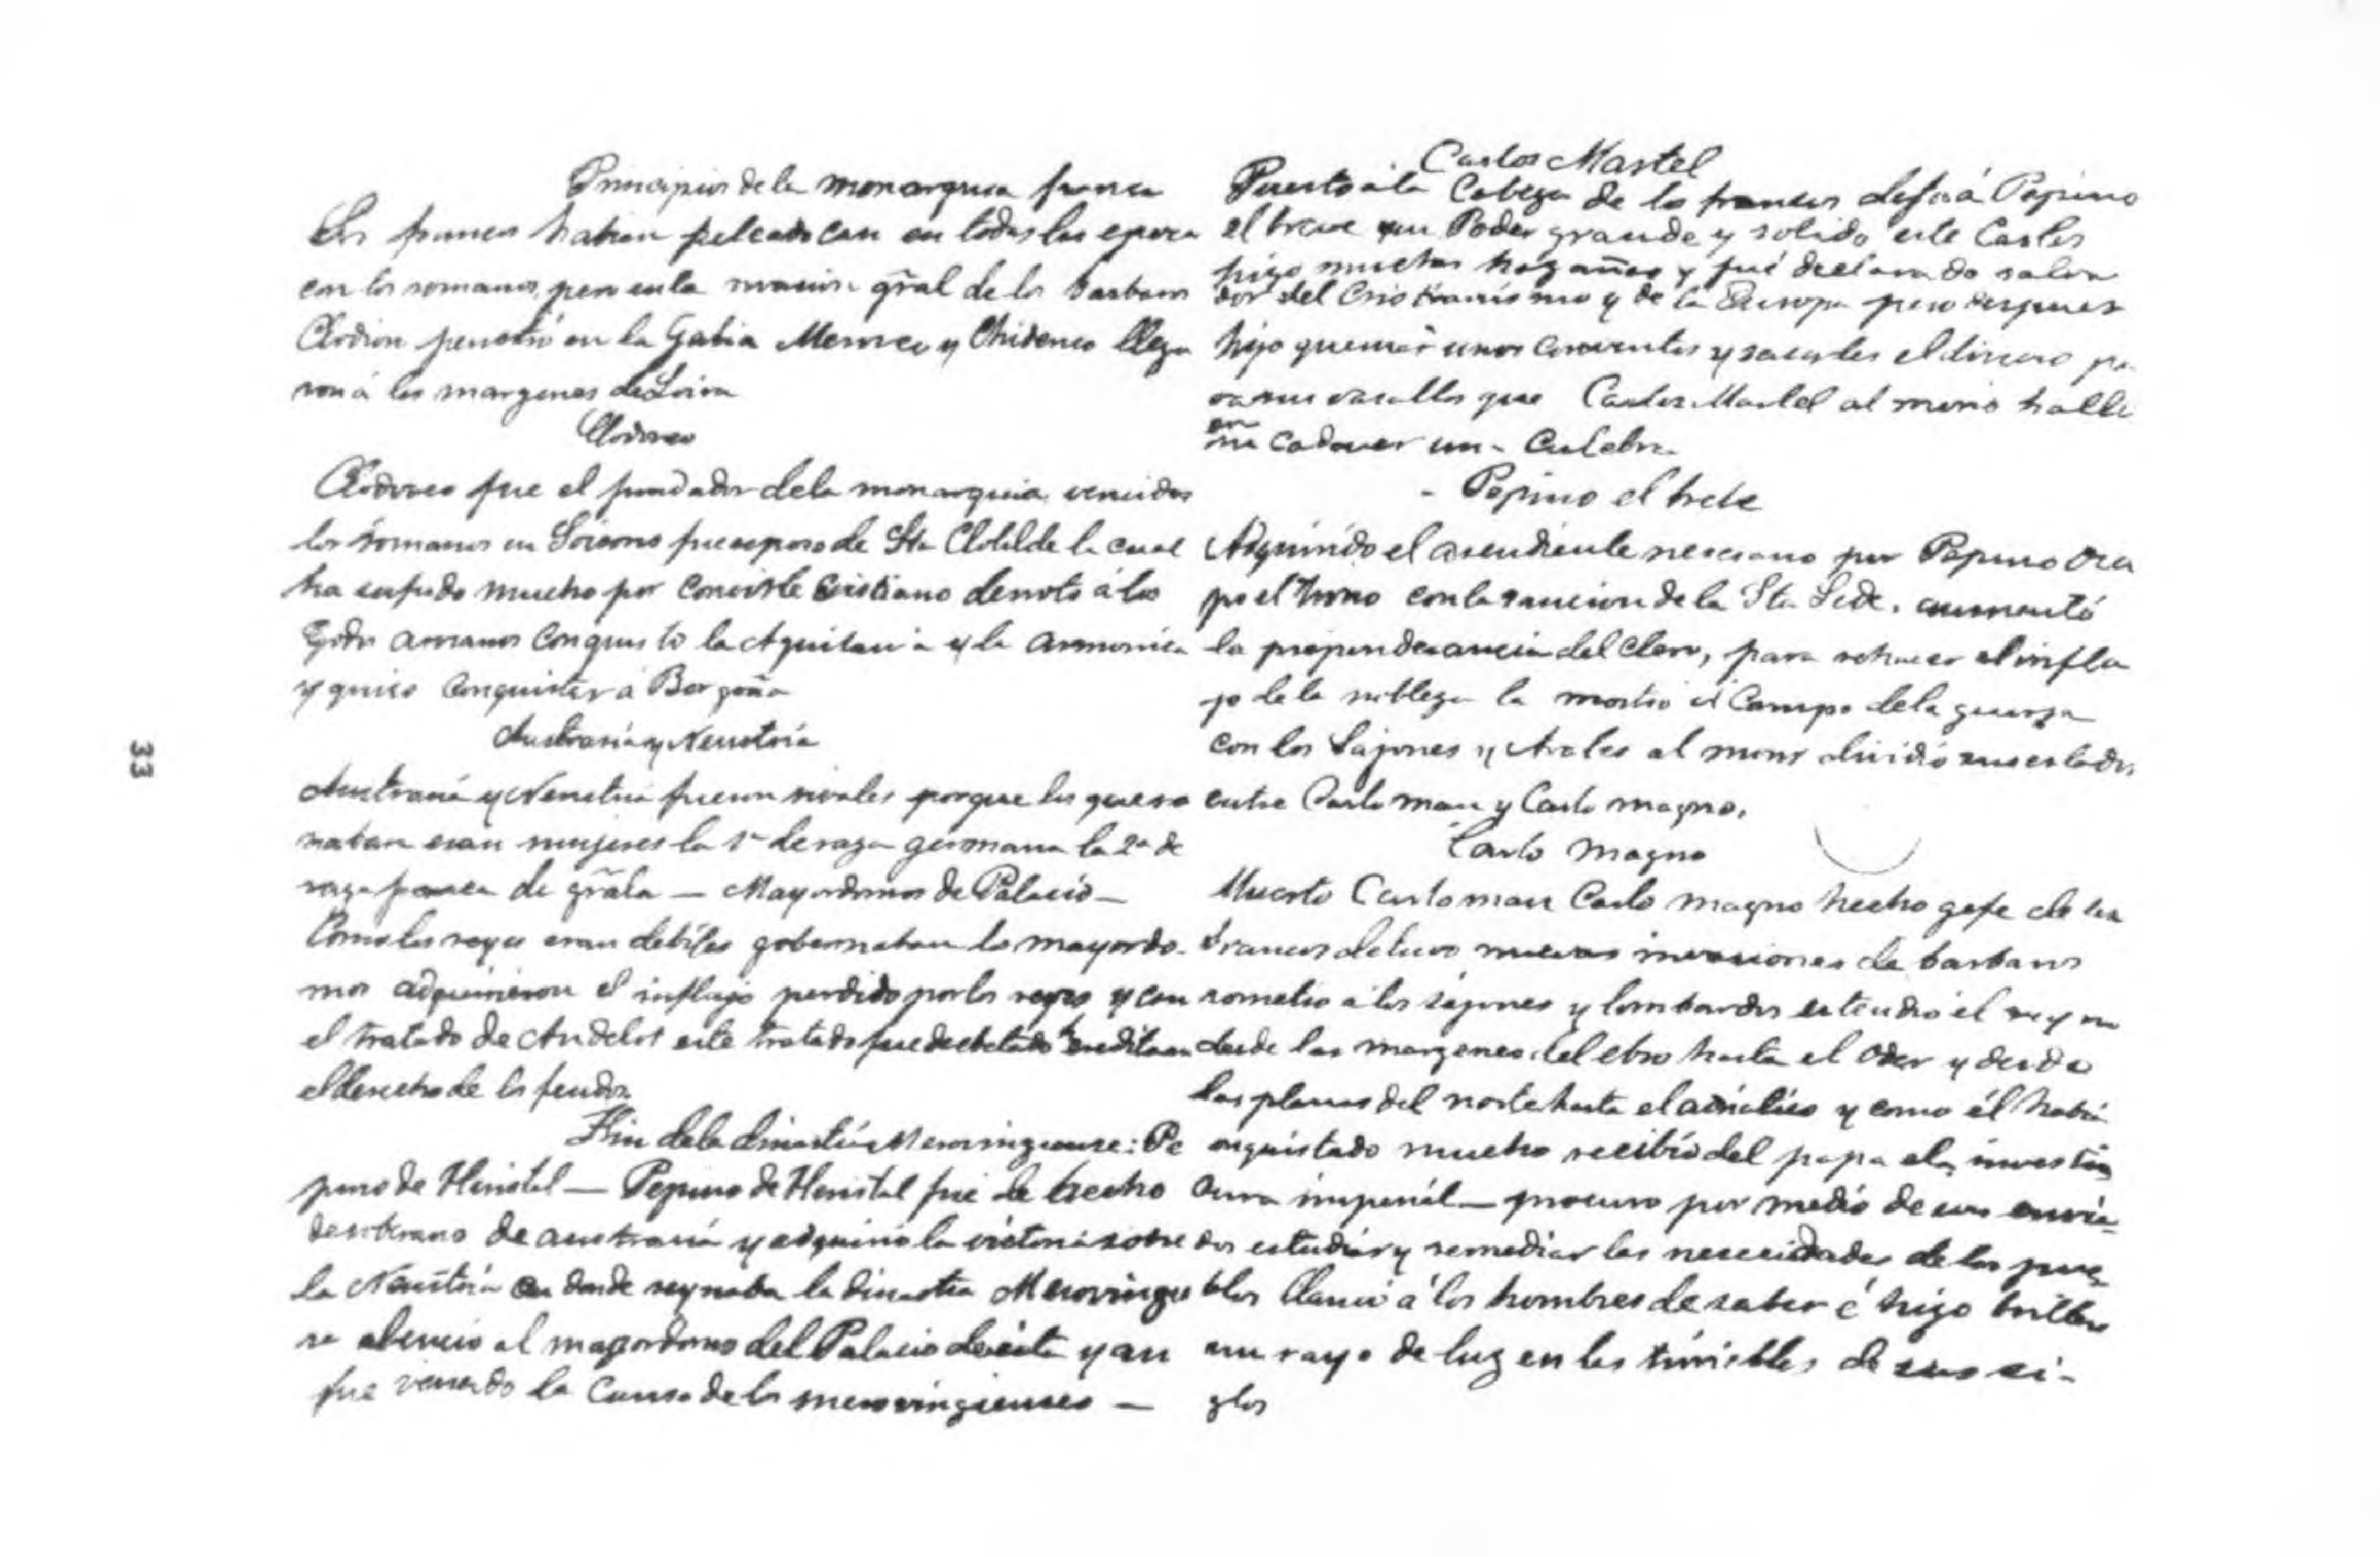 Principios de la monarquia franca
Los francos habian peleado casi en todas las epoca
con los romanos, pero en la invasion gral de los barbaros
Clodion penetró en la Galia Meroveo y Chiderico llega
ron á los margenes de Loira
Clodoveo
Clodoveo fue el fundador de la monarquia vencidos
los romanos en Soisons fue esposo de Sta Clotilde la cual
ha sufrido mucho por Convirtle Cristiano derrotó á los
godos arrianos Conquisto la Aquitania y la armorica
y quiso Conquistar á Borgoña
Austrasia y Neustria
Austrasia y Neustria fueron rivales porque las que go
naban eran mujeres la 1ª de raza germana la 2ª de
raza franca de grala — Mayordomos de Palacio —
Como los reyes eran debiles gobernaban lo mayordo-
mos adquirieron el influjo perdido por los reyes y con
el tratado de Andelot este tratado fue
el derecho de los feudos
Fin de la dinastía Merovingiense: Pe
pino de Heristal — Pepino de Heristal fue de hecho
de soberano de austrasia y adquirió la victoria sobre
la Neustria en donde reynaba la dinastia Merovingie
se al mayordomo del Palacio de ésta y asi
fue vencido la Causa de los merovingienses —
Carlos Martel
Puesto á la Cabeza de lo francos dejó á Pepino
el breve un Poder grande y solido, este Carlos
hizo muchas hazañas y fué declarado salva
dor del Cristianismo y de la Europa pero despues
hizo quemar unos Conventos y sacarles el dinero pa
ra sus vasallos que Carlos Martel al morir halló
en
su Cadaver una Culebra
- Pepino el brebe
Adquirido el asendiente nesesario por Pepino Ocu
po el trono con la sancion de la Sta Sede. aumentó
la preponderancia del Clero, para rehacer el influ
jo de la nobleza la mostró el Campo de la guerra
con los Sajones y Arabes al morir dividió sus estados
entre Carloman y Carlo magno.
Carlo Magno
Muerto Carloman Carlo magno hecho gefe de los
francos detuvo nuevas invasiones de barbaros
sometio a los sajones y lombardos estendio el reyno
desde las margenes del ebro hasta el Oder y desde
las playas del norte hasta el adriatico y como él habia
onquistado mucho recibió del papa ela investid
dura imperiál — procuro por medio de sus envia
dos estudiar y remediar las nesecidades de los pue
blos llamó á los hombres de saber é hizo brillar
un rayo de luz en las tinieblas de sus si-
glos
33